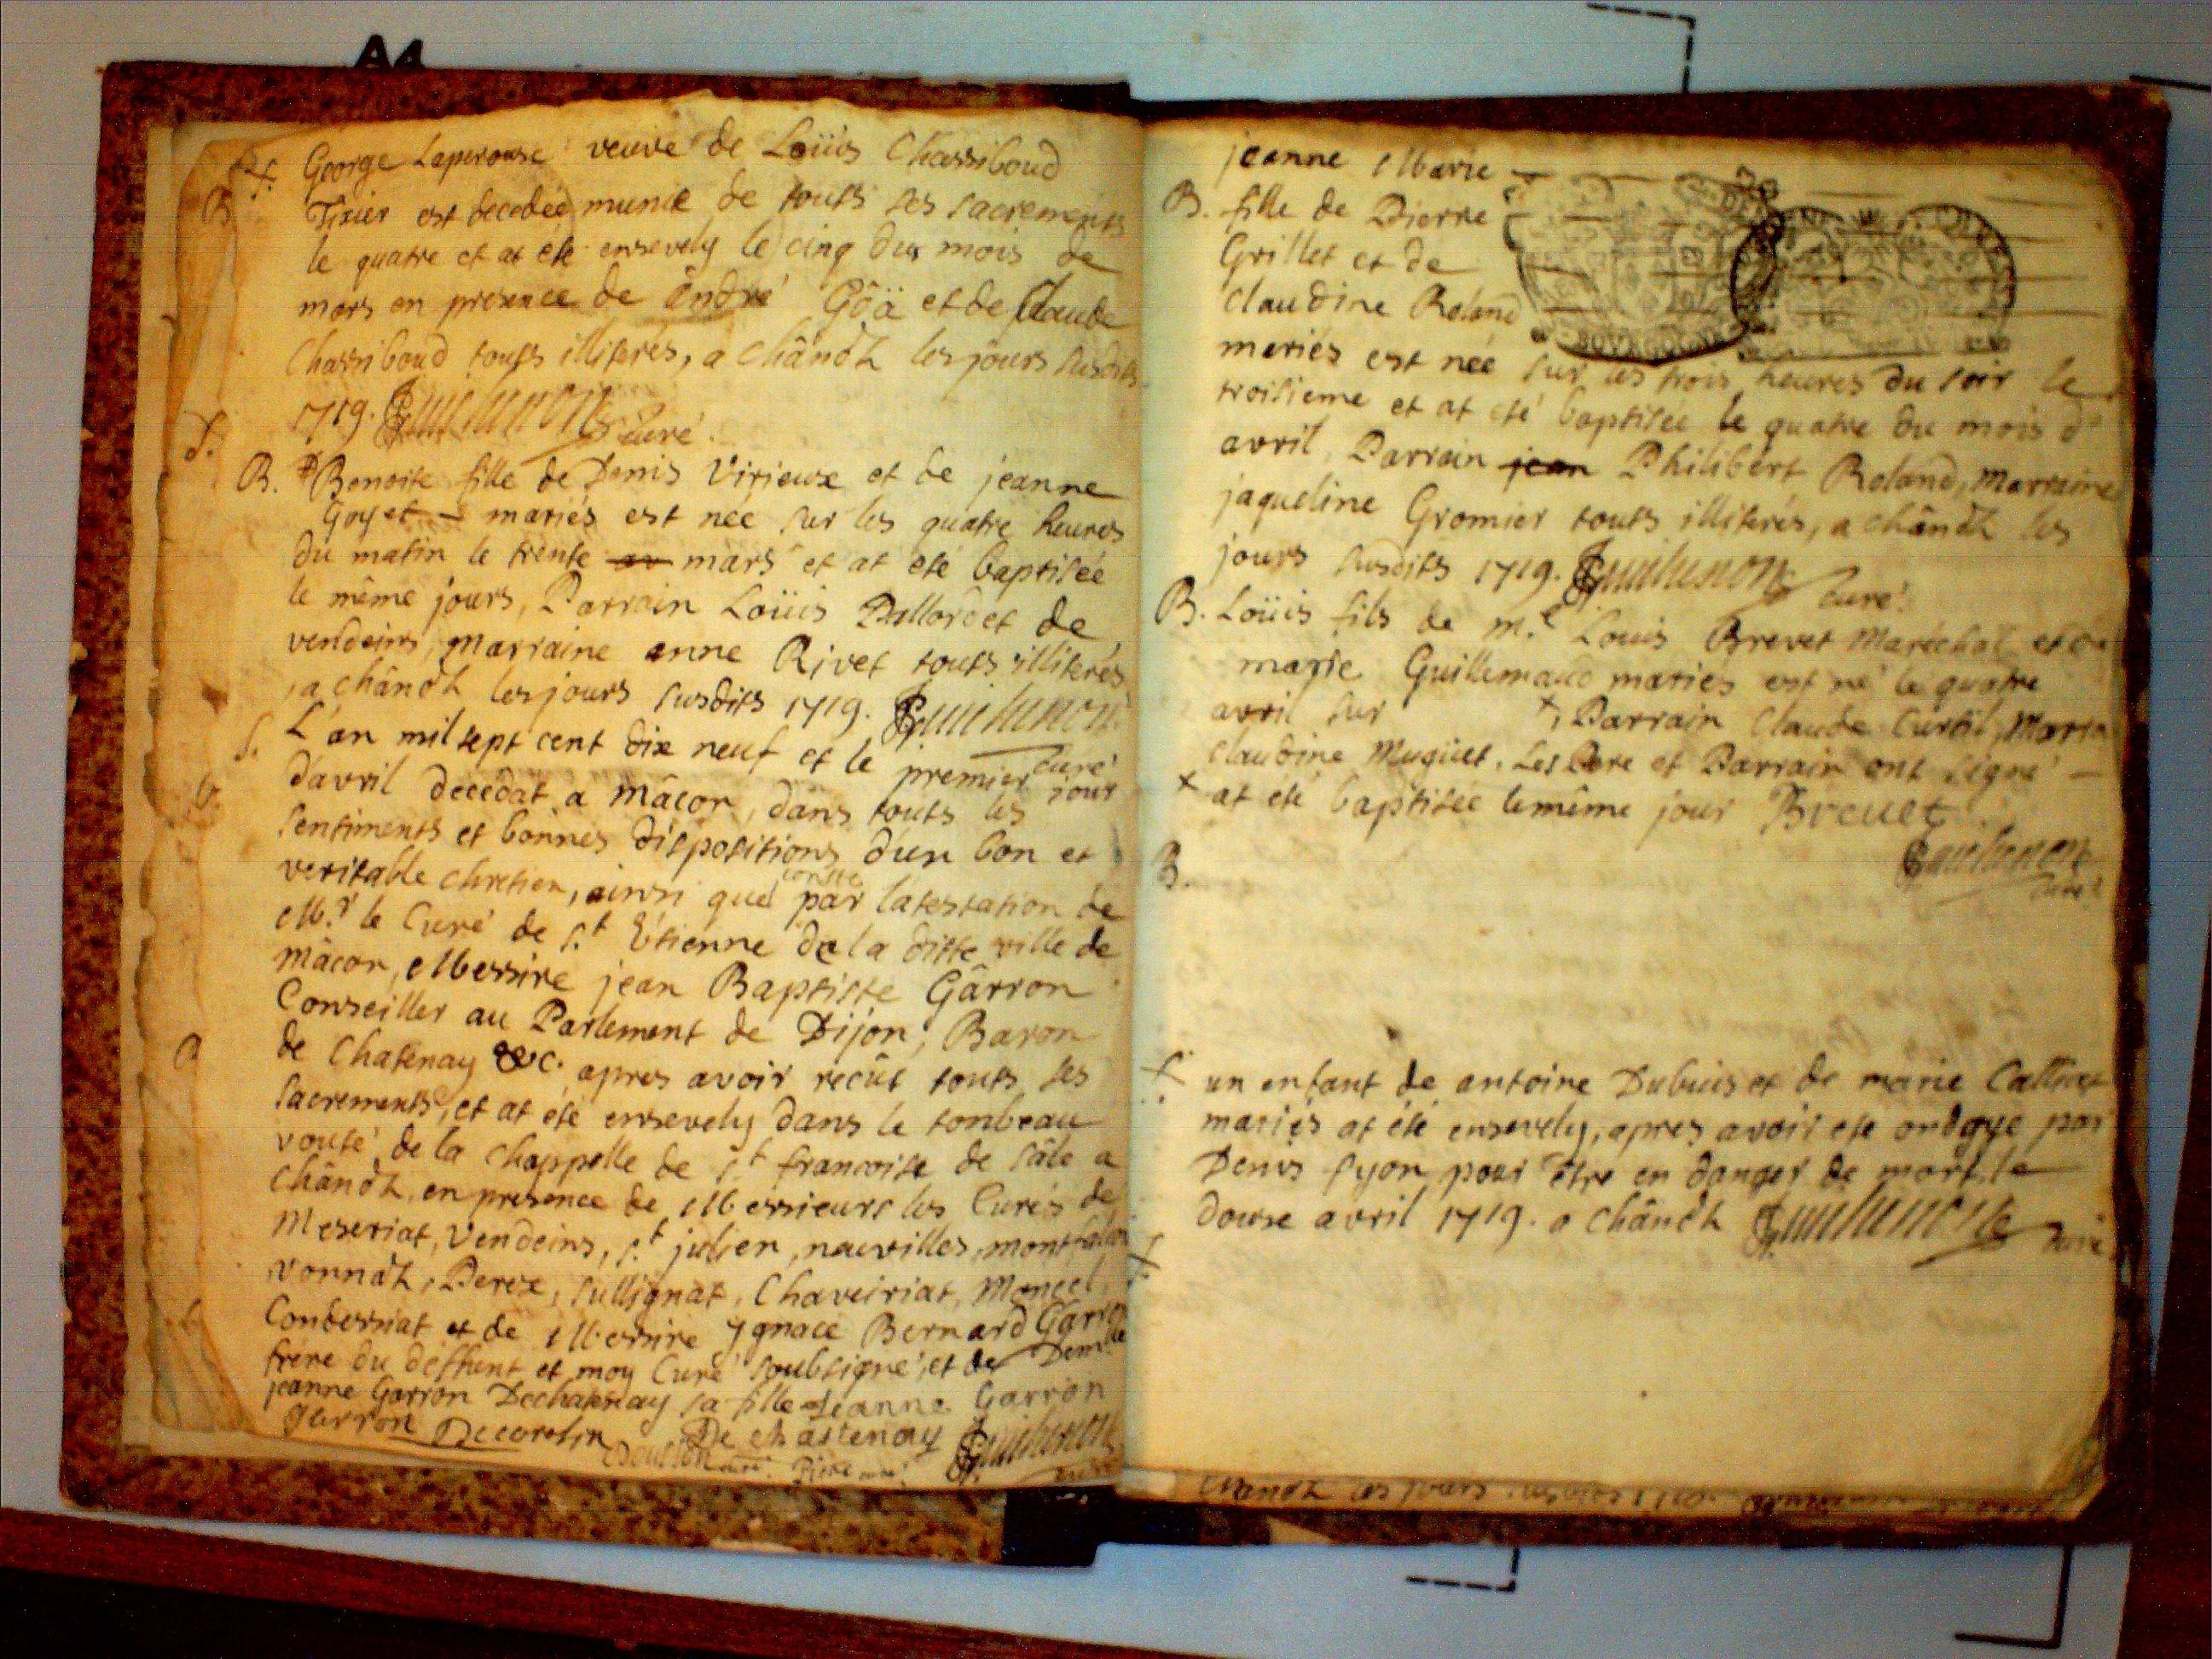 A4
George Laperouse veuve de Loüis Chassiboud
B Tixier est decedée munie de touts ses sacrements
le quatre et at eté ensevely le cinq du mois de
mars en presence de André Gôä et de Claude
Chassiboud touts illiterés, a Chândt les jours susdits
1719. Guichenon curé.
B. Benoite fille de Denis Virieux et de jeanne
Goyet - mariés est neé sur les quatre heures
du matin le trente av mars et at eté baptisée
le même jours, Parrain Loüis Pallordet de
vendeins, marraine anne Rivet touts illiterés
, a chândt les jours susdits 1719. Guichenon
curé
S. L'an mil sept cent dix neuf et le premier jour
d'avril décedat a mâcon, dans touts les
sentiments et bonnes dispositions d'un bon et
veritable chretien, ainsi que conste par latestation de
Mr le Curé de st Étienne de la ditte ville de
mâcon, Messire jean Baptiste Gârron
Conseiller au Parlement de Dijon, Baron
de Chatenay &c. apres avoir recût touts ses
sacrements, et at eté ensevely dans le tombeau
vouté de la Chappelle de st francoise de sâle a
Chândt, en presence de Messieurs les Curés de
Meseriat, Vendeins, st julien, neuvilles, montfalcon
vonnat, Perex, sulligniat, Chaveiriat, Moncel,
Condessiat et de Messire Ygnace Bernard Garron
frere du deffunt et moy Curé soubsigné, et de Demlle
jeanne Garron Dechatenay sa fille Jeanne Garron
garron De chastenay Guichenon
curé
jeanne Marie -
B. fille de Pierre
Grillet et de
claudine Roland
BOURGOGNE
mariés est neé sur les trois heures du soir le
troisieme et at eté baptisée le quatre du mois d'
avril, Parrain jean Philibért Roland, marraine
jaqueline Gromier touts illiterés, a chândt les
jours susdits 1719. Guichenon curé.
B. Loüis fils de m.e Louis Brevet Marechal et de
marie Guillemaud mariés est né le quatre
avril sur +, Parrain Claude Curtil, Marra
claudine Muguet. Les Pere et Parrain ont signé -
+ at eté baptisée le même jour Breuet
Guichenon
curé
B.
S. un enfant de antoine Dubuis et de marie
mariés at eté ensevely, apres avoir eté ondoye par
Denis syon pour être en danger de mort, le
douse avril 1719. a Chândt Guichenon
curé
Chandt les jours susdits